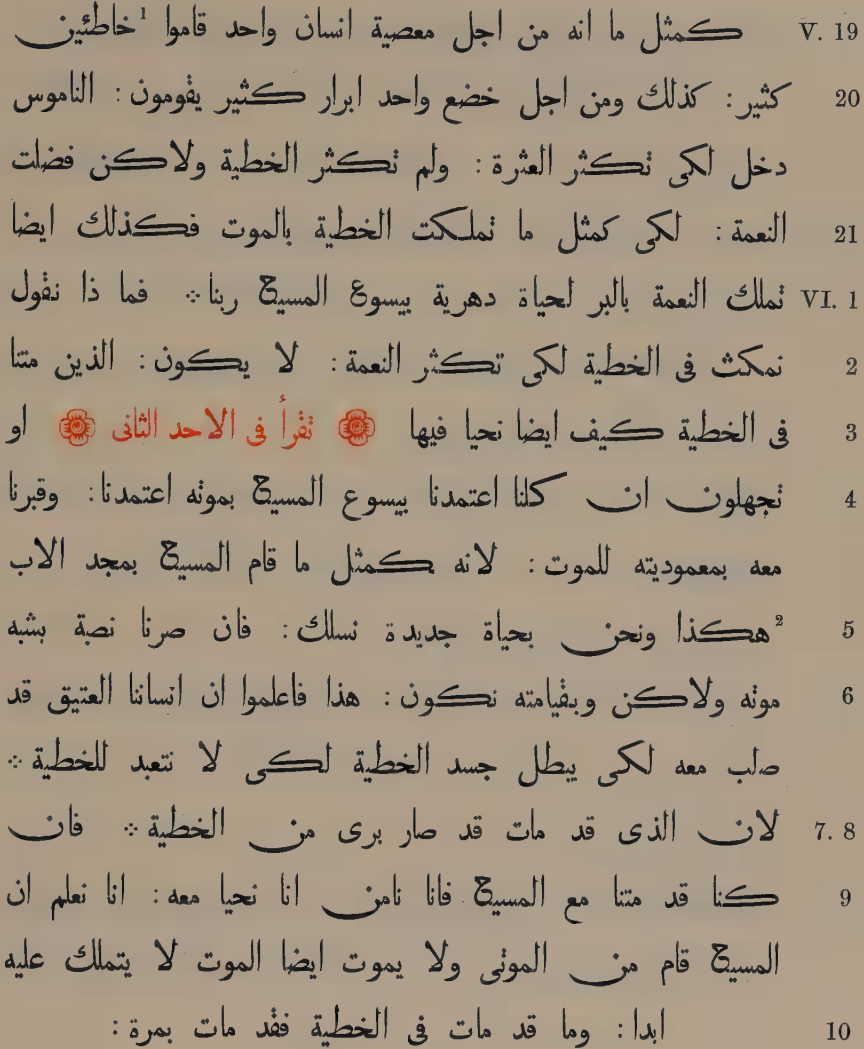 V. 19 كمثل ما انه من اجل معصية انسان واحد قاموا ¹خاطئين
20 كثير : كذلك ومن اجل خضع واحد ابرار كثير يقومون : الناموس
دخل لكى تكثر العثرة : ولم تكثر الخطية ولاكن فضلت
21 النعمة : لكى كمثل ما تملكت الخطية بالموت فكذلك ايضا
VI. 1 تملك النعمة بالبر لحياة دهرية بيسوع المسيح ربنا ⁘ فما ذا نقول
2 نمكث فى الخطية لكى تكثر النعمة : لا يكون : الذين متنا
3 فى الخطية كيف ايضا نحيا فيها تقرأ فى الاحد الثانى او
4 تجهلون ان كلنا اعتمدنا بيسوع المسيح بموته اعتمدنا : وقبرنا
معه بمعموديته للموت : لانه كمثل ما قام المسيح بمجد الاب
5 ²هكذا ونحن بحياة جديدة نسلك : فان صرنا نصبة بشبه
6 موته ولاكن وبقيامته نكون : هذا فاعلموا ان انساننا العتيق قد
صلب معه لكى يبطل جسد الخطية لكى لا نتعبد للخطية ⁘
7. 8 لان الذى قد مات قد صار برى من الخطية ⁘ فان
9 كنا قد متنا مع المسيح فانا نامن انا نحيا معه : انا نعلم ان
المسيح قام من الموتى ولا يموت ايضا الموت لا يتملك عليه
10 ابدا : وما قد مات فى الخطية فقد مات بمرة :